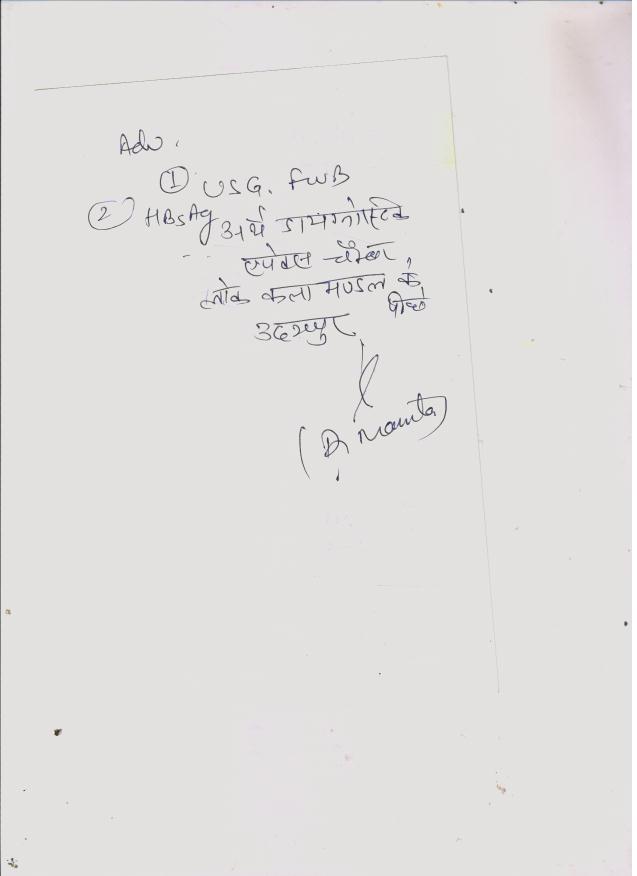 Adv.
① USG. FWB
② HBsAg
अर्थ डायग्नोस्टिक
एपेक्स चैम्बर,
लोक कला मण्डल के
पीछे
उदयपुर
(Dr Mamta)